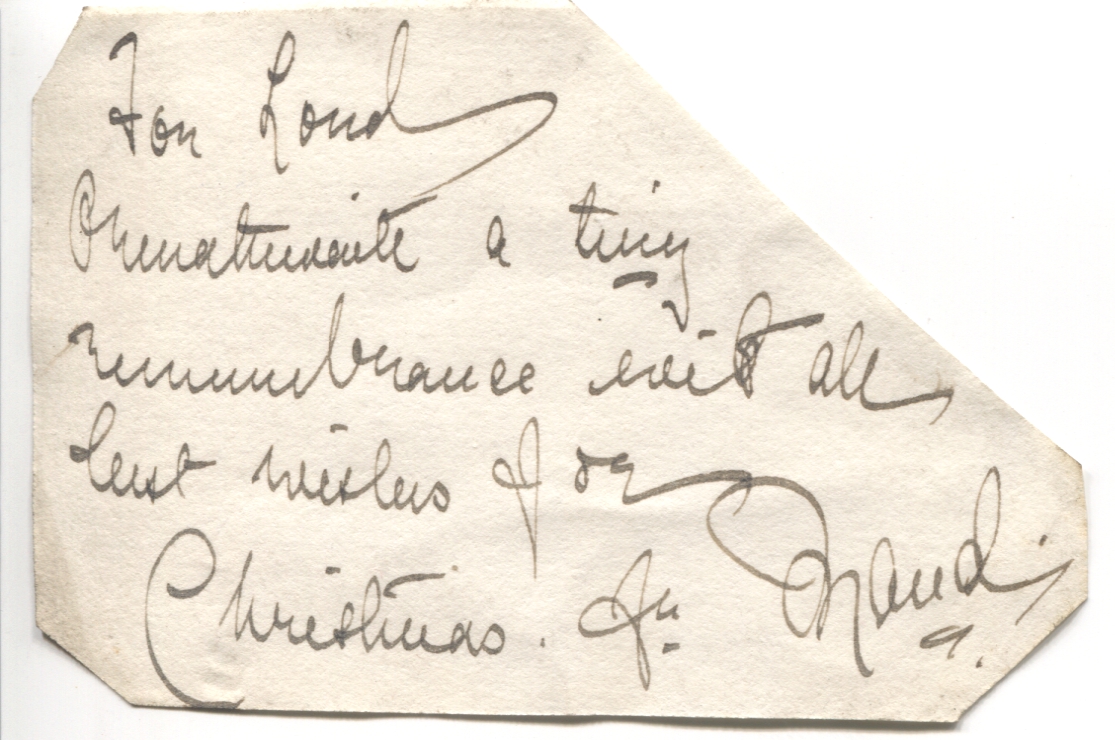 For Lord
Ormathwaite a tiny
remembrance with all
best wishes for
Christmas. fr. Maud.